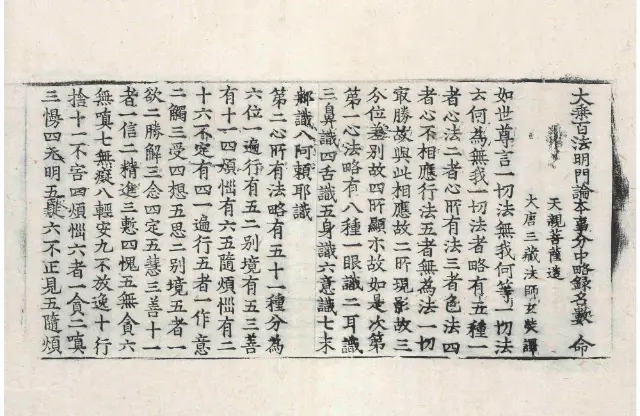 大乘百法明門論本事分中略錄名數　命
天親菩薩造
大唐三藏法師玄奘譯
如世尊言一切法無我何等一切法
云何為無我一切法者略有五種一
者心法二者心所有法三者色法四
者心不相應行法五者無為法一切
最勝故與此相應故二所現影故三
分位差別故四所顯示故如是次第
第一心法略有八種一眼識二耳識
三鼻識四舌識五身識六意識七末
那識八阿賴耶識
第二心所有法略有五十一種分為
六位一遍行有五二別境有五三善
有十一四煩惱有六五隨煩惱有二
十六不定有四一遍行五者一作意
二觸三受四想五思二別境五者一
欲二勝解三念四定五慧三善十一
者一信二精進三慙四愧五無貪六
無嗔七無癡八輕安九不放逸十行
捨十一不害四煩惱六者一貪二嗔
三慢四无明五疑六不正見五隨煩